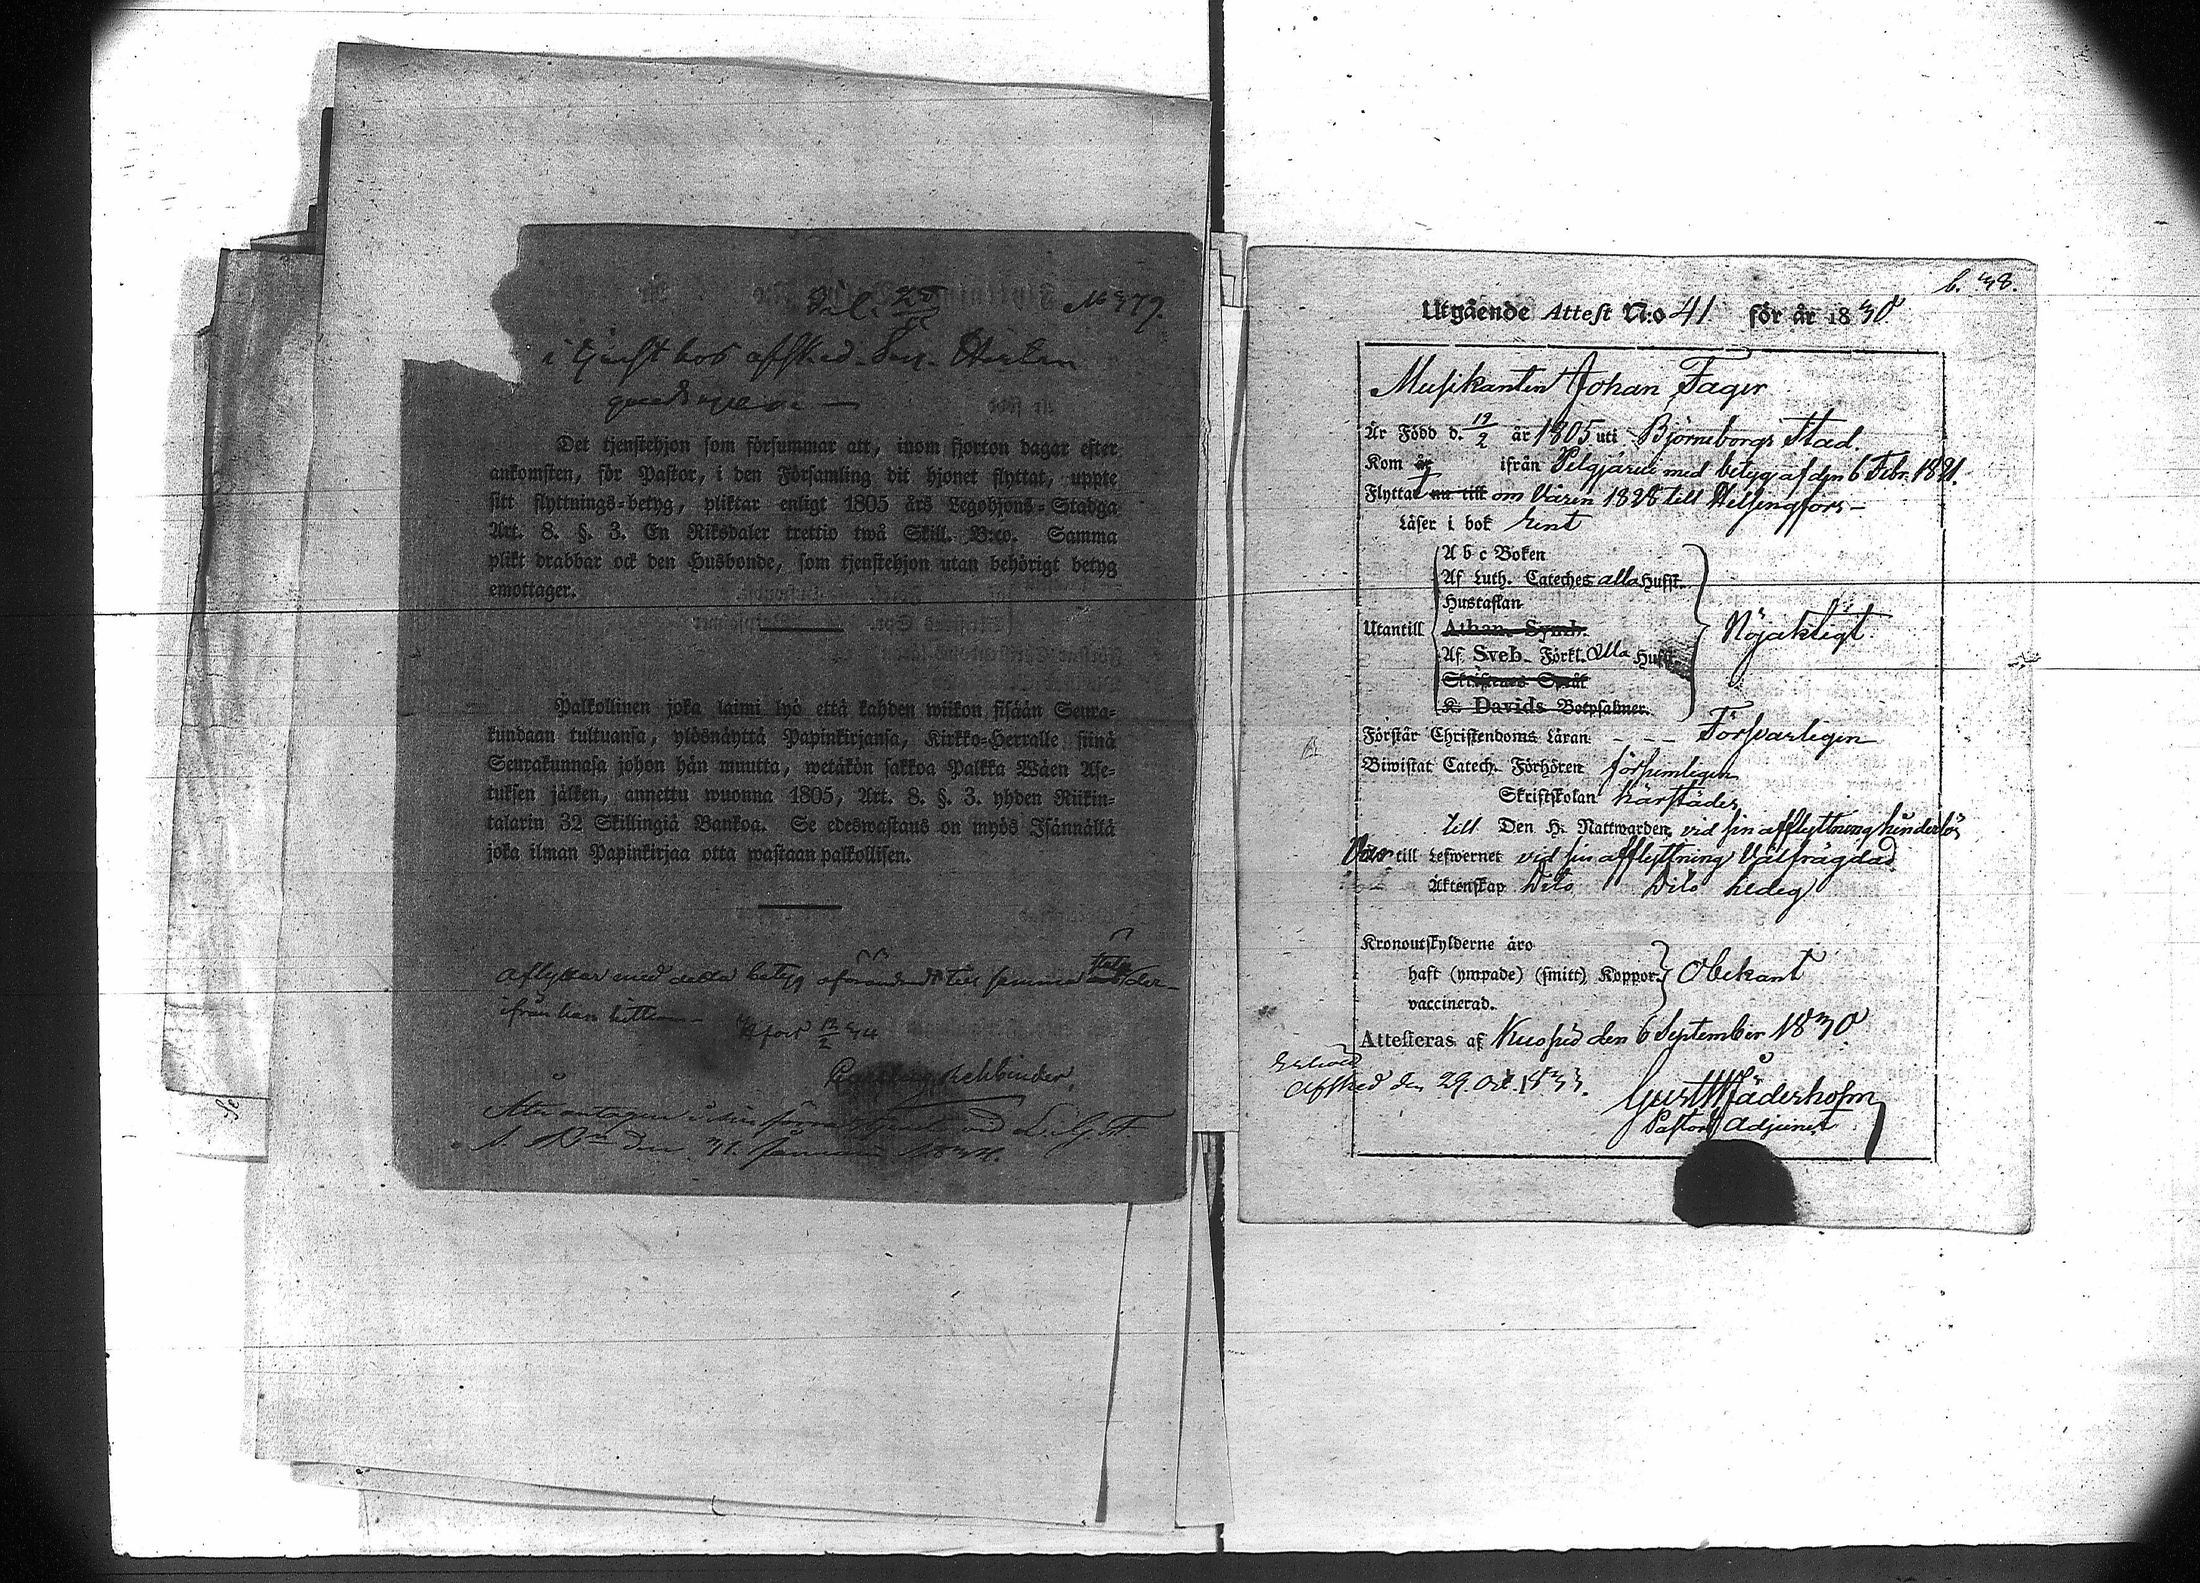 № 379.
i tjenst hos afsked.
Det tjenstehjon som försummar att, inom fjorton dagar efter
ankomsten, för Pastor, i den Församling dit hjonet flyttat, uppte
sitt flyttnings-betyg, pliktar enligt 1805 års Legohjons-Stadga
Art. 8. §. 3. En Riksdaler trettio twå Skill. B:co. Samma
plikt drabbar ock den Husbonde, som tjenstehjon utan behörigt betyg
emottager.
Palkollinen joka laimi lyö että kahden wiikon sisään Seura-
kundaan tultuansa, ylösnäyttä Papinkirjansa, Kirkko-Herralle siinä
Seurakunnasa johon hän muutta, wetäkön sakkoa Palkka Wäen Ase-
tuksen jälken, annettu wuonna 1805, Art. 8. §. 3. yhden Riikin-
talarin 32 Skillingiä Bankoa. Se edeswastaus on myös Isännällä
joka ilman Papinkirjaa otta wastaan palkollisen.
Aflyttar med detta betyg oförändradt till samma der-
ifrån han hitkom
H:fors 12/2 34
Rehbinder.
Åter antagen i sin förra tjenst ved L. G. F.
S. B:n den 31. Januari 1834.
b. 38.
Utgående Attest N:o 41 för år 1830
Musikanten Johan Fager
Är Född d. 19/2 år 1805 uti Björneborgs Stad.
Kom år ifrån Pelgjärvi med betyg af den 6 Febr. 1821.
Flyttat nu till om Våren 1828 till Helsingfors
Läser i bok rent
A b c Boken
Af Luth. Cateches alla Hufst.
Hustaflan
Utantill Athan. Symb. Nöjaktigt
Af Sveb. Förkl. Alla Hufst.
Skriftenes Språk
K. Davids Botpsalmer.
Förstår Christendoms Läran Försvarligen
Biwistat Catech. Förhören
Skriftskolan härstädes
till Den H. Nattwarden, vid sin afflyttning hinderlös
Var till Lefwernet vid sin afflyttning Välfrägdad
Äktenskap Dito Dito ledig
Kronoutskylderne äro
haft (ympade) (smitt) Koppor. Obekant
vaccinerad.
Attesteras af Kuopio den 6 September 1830
Erhöll
Afsked den 29. Oct. 1833.
Gust. Wäderholm
Pastors Adjunct